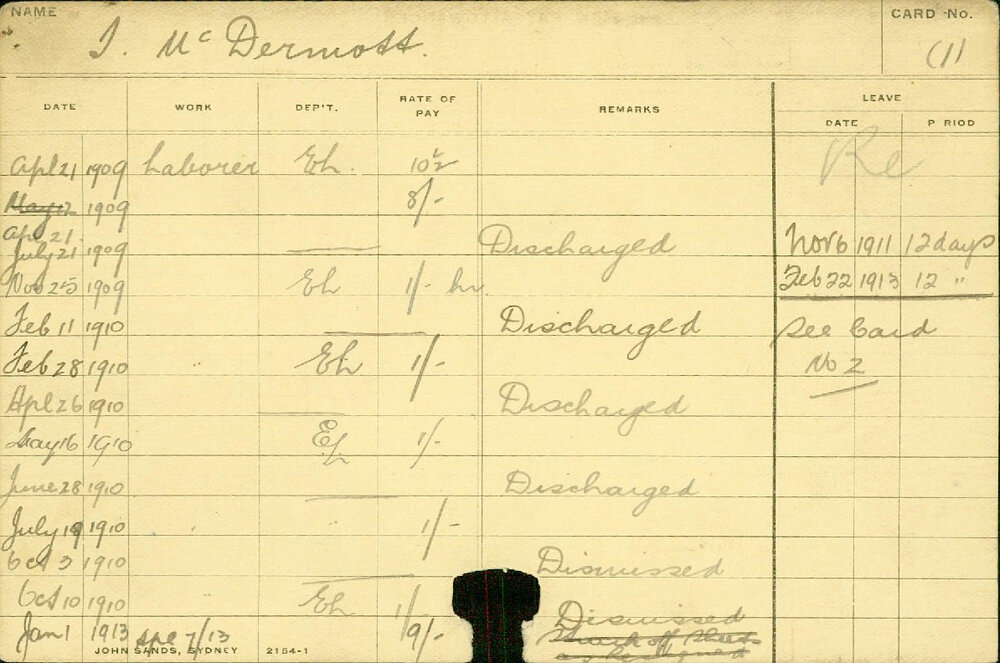 NAME
CARD No.
J. McDermott.
(1)
DATE WORK DEP'T. RATE OF PAY REMARKS LEAVE
DATE P RIOD
Apl 21 1909 Laborer Eh. 10½
Re
May 12 1909 8/-
Apl 21
July 21 1909 Discharged Nov 6 1911 12 days
Nov 25 1909 Eh 1/- hr Feb 22 1913 12 "
Feb 11 1910 Discharged See Card
Feb 28 1910 Eh 1/- No 2
Apl 26 1910 Discharged
May 16 1910 1/-
June 28 1910 Discharged
July 19 1910 1/-
Oct 3 1910 Dismissed
Oct 10 1910 Eh 1/- Dismissed
Jan 1 1913 Apl 7/13 9/- Struck off Sheets
as Resigned
JOHN SANDS, SYDNEY 2154-1